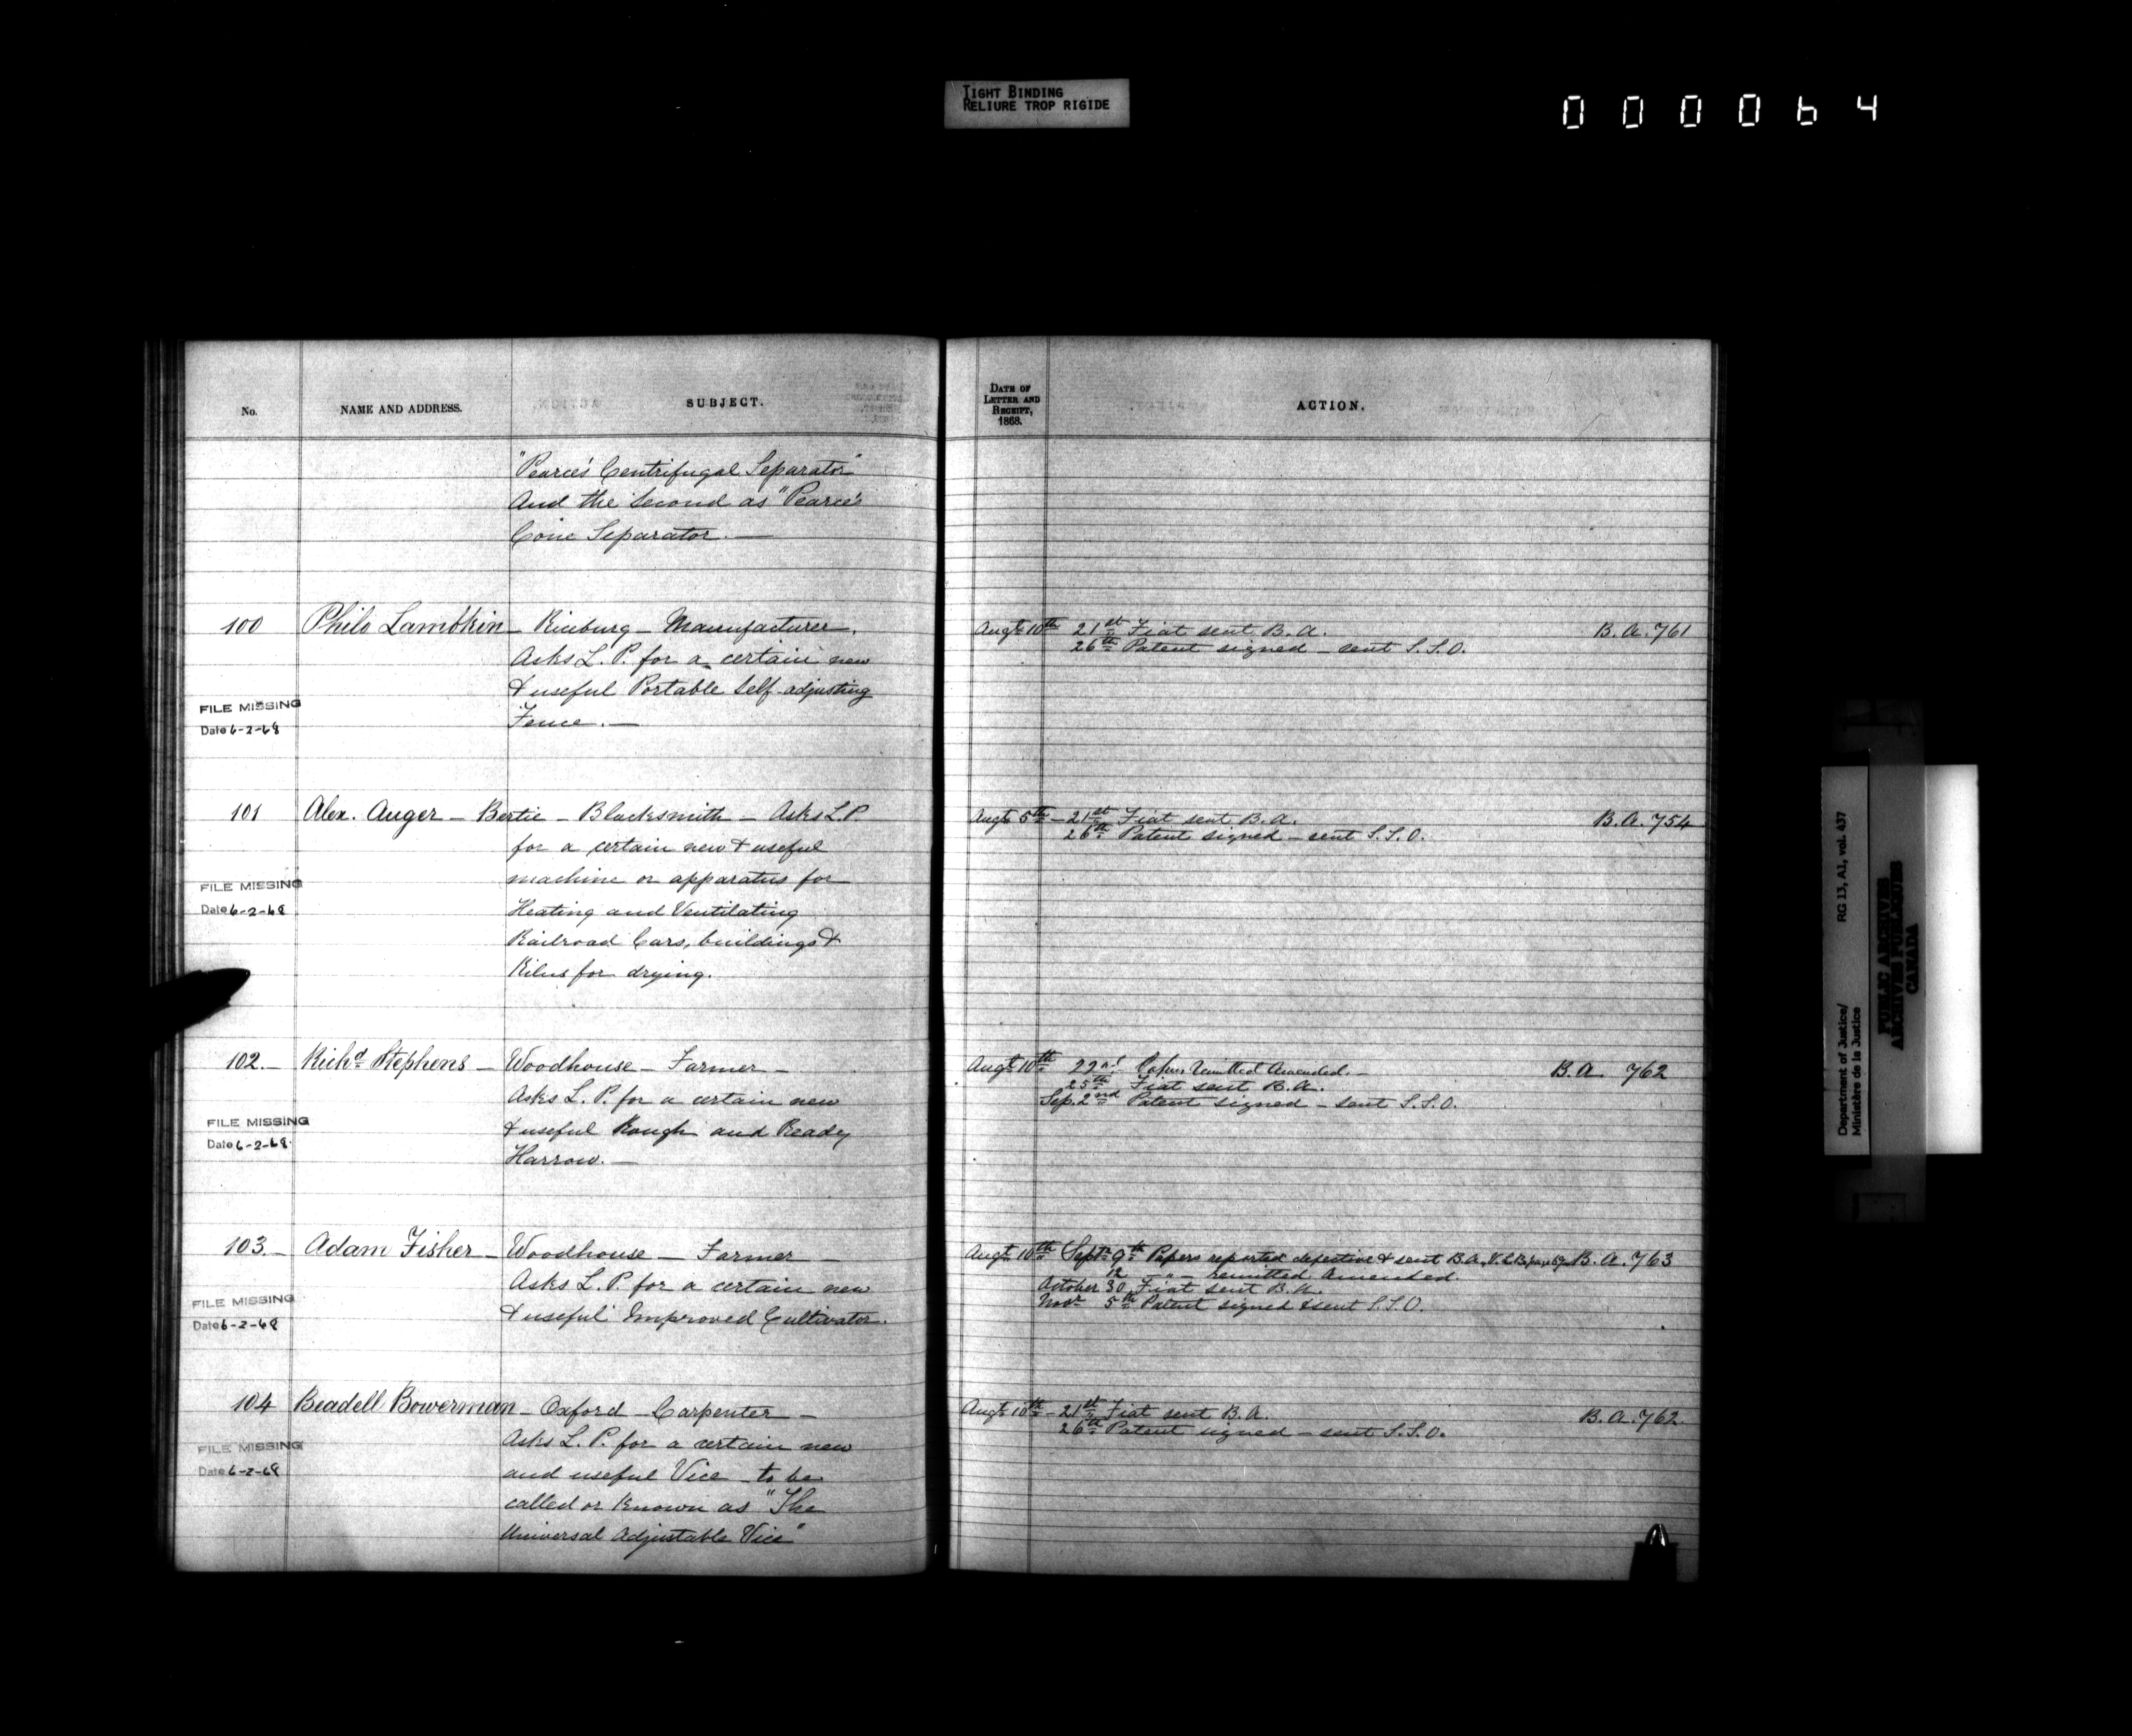 TIGHT BINDING
RELIURE TROP RIGIDE
000064
No.
NAME AND ADDRESS.
SUBJECT.
"Pearce's Centrifugal Separator"
And the Second as "Pearce's
Cone Separator. —
100 Philo Lambkin — Riceburg — Manufacturer.
Asks L. P. for a certain new
& useful Portable Self-adjusting
Fence. —
FILE MISSING
Date 6-2-68
101 Alex. Auger — Bertie — Blacksmith — Asks L.P.
for a certain new & useful
machine or apparatus for
Heating and Ventilating
Railroad Cars, buildings &
Kilns for drying.
FILE MISSING
Date 6-2-68
102. — Richd Stephens — Woodhouse — Farmer —
Asks L. P. for a certain new
& useful Rough and Ready
Harrow. —
FILE MISSING
Date 6-2-68
103. — Adam Fisher — Woodhouse — Farmer —
Asks L. P. for a certain new
& useful Improved Cultivator.
FILE MISSING
Date 6-2-68
104 Beadell Bowerman — Oxford — Carpenter —
Asks L. P. for a certain new
and useful Vice — to be
called or known as "The
Universal Adjustable Vice"
FILE MISSING
Date 6-2-68
DATE OF
LETTER AND
RECEIPT,
1868.
ACTION.
Augt 10th 21st Fiat sent B. A. B. A. 761
26th Patent signed — sent S. S. O.
Augt 5th — 21st Fiat sent B. A. B. A. 754
26th Patent signed — sent S. S. O.
Augt 10th 22nd Papers remitted Amended. — B. A. 762
25th Fiat sent B. A.
Sep. 2nd Patent signed — sent S. S. O.
Augt 10th Septr 9th Papers reported defective & sent B. A. B. A. 763
12 — " — remitted Amended.
October 30 Fiat sent B. A.
Novr 5th Patent signed & sent S. S. O.
Augt 10th — 21st Fiat sent B. A. B. A. 762
26th Patent signed — sent S. S. O.
Department of Justice/
Ministère de la Justice
RG 13, A1, vol. 437
PUBLIC ARCHIVES
ARCHIVES PUBLIQUES
CANADA